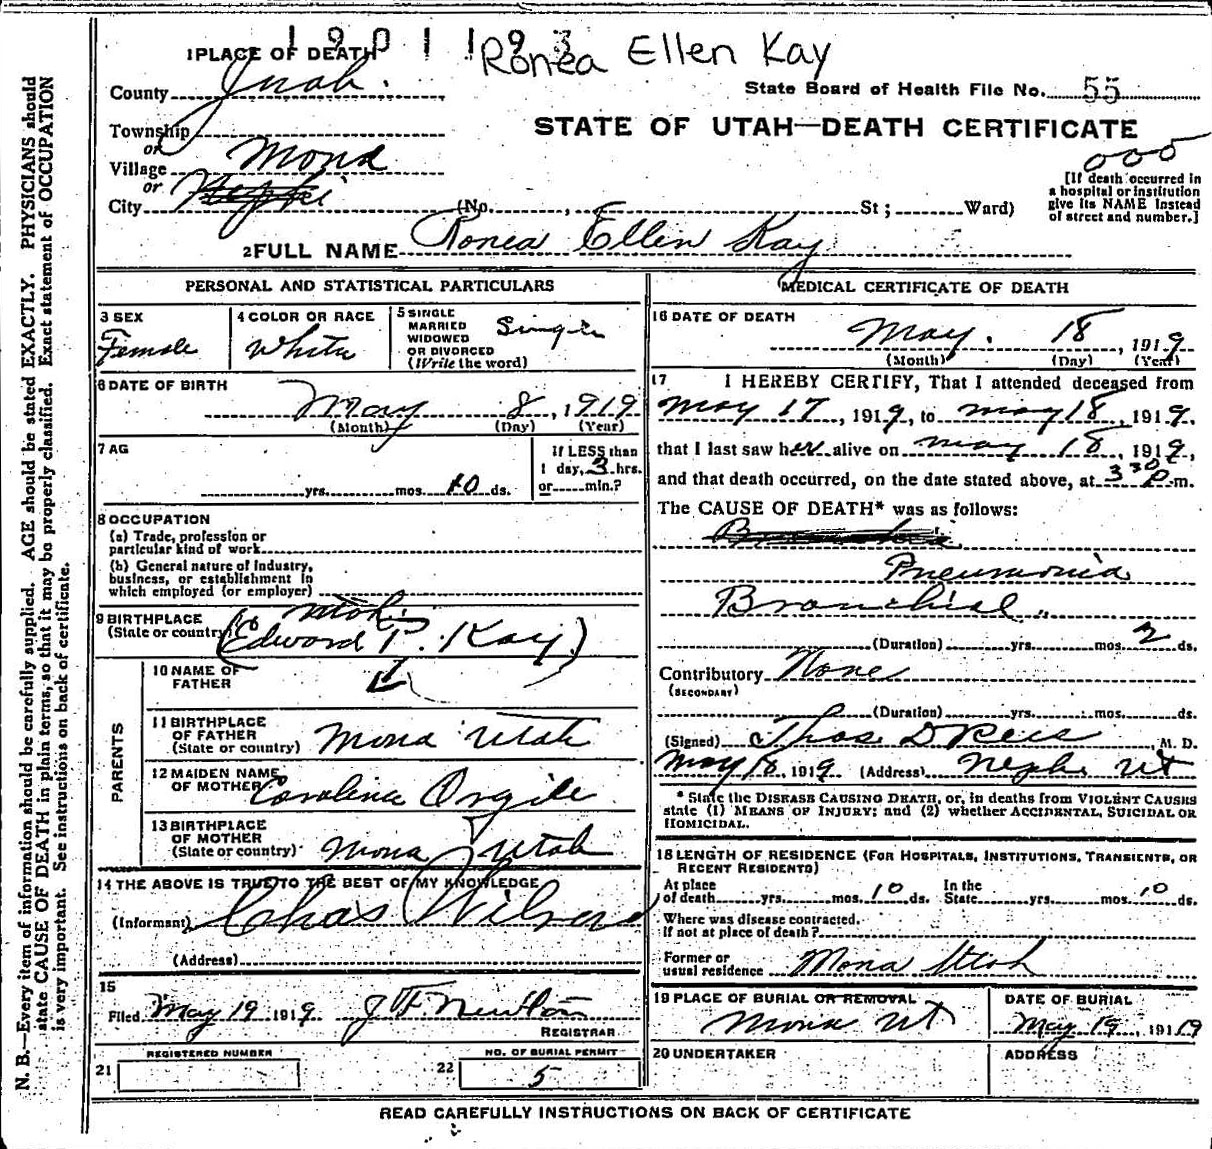 1901193
Ronea Ellen Kay
1 PLACE OF DEATH
County Juab.
State Board of Health File No. 55
Township
or
Village Mona
or
City Nephi (No. , St; Ward)
STATE OF UTAH—DEATH CERTIFICATE
000
[If death occurred in
a hospital or institution
give its NAME instead
of street and number.]
2 FULL NAME Ronea Ellen Kay
PERSONAL AND STATISTICAL PARTICULARS
3 SEX
Female
4 COLOR OR RACE
White
5 SINGLE
MARRIED
WIDOWED
OR DIVORCED
(Write the word)
Single
6 DATE OF BIRTH
May 8, 1919
(Month) (Day) (Year)
7 AG
yrs. mos. 10 ds.
If LESS than
1 day, 3 hrs.
or min.?
8 OCCUPATION
(a) Trade, profession or
particular kind of work
(b) General nature of industry,
business, or establishment in
which employed (or employer)
9 BIRTHPLACE
(State or country)
Utah
(Edward P. Kay)
PARENTS
10 NAME OF
FATHER
11 BIRTHPLACE
OF FATHER
(State or country) Mona Utah
12 MAIDEN NAME
OF MOTHER Carolina Orgile
13 BIRTHPLACE
OF MOTHER
(State or country) Mona Utah
14 THE ABOVE IS TRUE TO THE BEST OF MY KNOWLEDGE
(Informant) Chas Wilson
(Address)
15
Filed May 19 1919 J H Newton
REGISTRAR
REGISTERED NUMBER
21
NO. OF BURIAL PERMIT
22 5
MEDICAL CERTIFICATE OF DEATH
16 DATE OF DEATH
May. 18, 1919
(Month) (Day) (Year)
17 I HEREBY CERTIFY, That I attended deceased from
May 17, 1919, to May 18, 1919,
that I last saw her alive on May 18, 1919,
and that death occurred, on the date stated above, at 3 30 P.m.
The CAUSE OF DEATH* was as follows:
Pneumonia
Bronchial
(Duration) yrs. mos. 2 ds.
Contributory None
(SECONDARY)
(Duration) yrs. mos. ds.
(Signed) Thos D Rees M. D.
May 18, 1919 (Address) Nephi Ut
* State the DISEASE CAUSING DEATH, or, in deaths from VIOLENT CAUSES
state (1) MEANS OF INJURY; and (2) whether ACCIDENTAL, SUICIDAL OR
HOMICIDAL.
18 LENGTH OF RESIDENCE (FOR HOSPITALS, INSTITUTIONS, TRANSIENTS, OR
RECENT RESIDENTS)
At place
of death yrs. mos. 10 ds.
In the
State yrs. mos. 10 ds.
Where was disease contracted,
If not at place of death?
Former or
usual residence Mona Utah
19 PLACE OF BURIAL OR REMOVAL
Mona Ut
DATE OF BURIAL
May 19, 19119
20 UNDERTAKER
ADDRESS
READ CAREFULLY INSTRUCTIONS ON BACK OF CERTIFICATE
N. B.—Every item of information should be carefully supplied. AGE should be stated EXACTLY. PHYSICIANS should
state CAUSE OF DEATH in plain terms, so that it may be properly classified. Exact statement of OCCUPATION
is very important. See instructions on back of certificate.